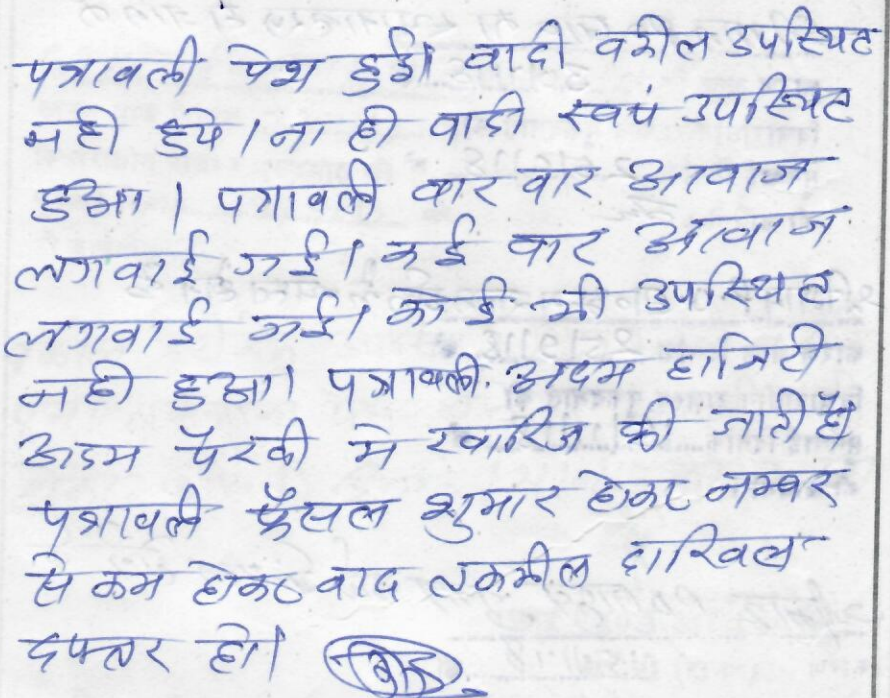 पत्रावली पेश हुई। वादी वकील उपस्थित
नही हुये। ना ही वादी स्वयं उपस्थित
हुआ। पत्रावली बार बार आवाज
लगवाई गई। कई बार आवाज
लगवाई गई। कोई भी उपस्थित
नही हुआ। पत्रावली अदम हाजिरी
अदम पैरवी मे खारिज की जाती है।
पत्रावली फैसल शुमार होकर नम्बर
से कम होकर बाद तकमील दाखिल
दफ्तर हो।